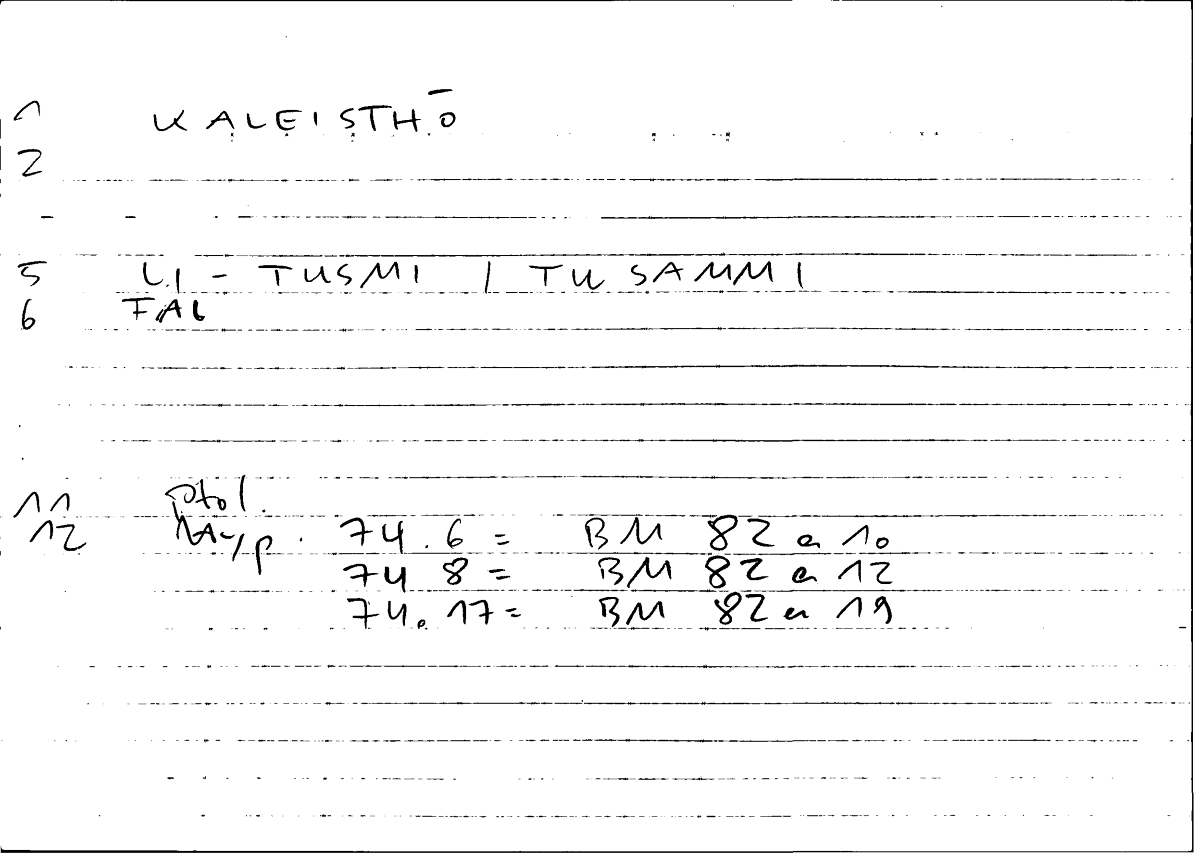 1 KALEISTHŌ
2
5 LI - TUSMI / TU SAMMI
6 FAL
11 ptol.
12 74.6 = BM 82 a 10
74 8 = BM 82 a 12
74.17 = BM 82 a 19